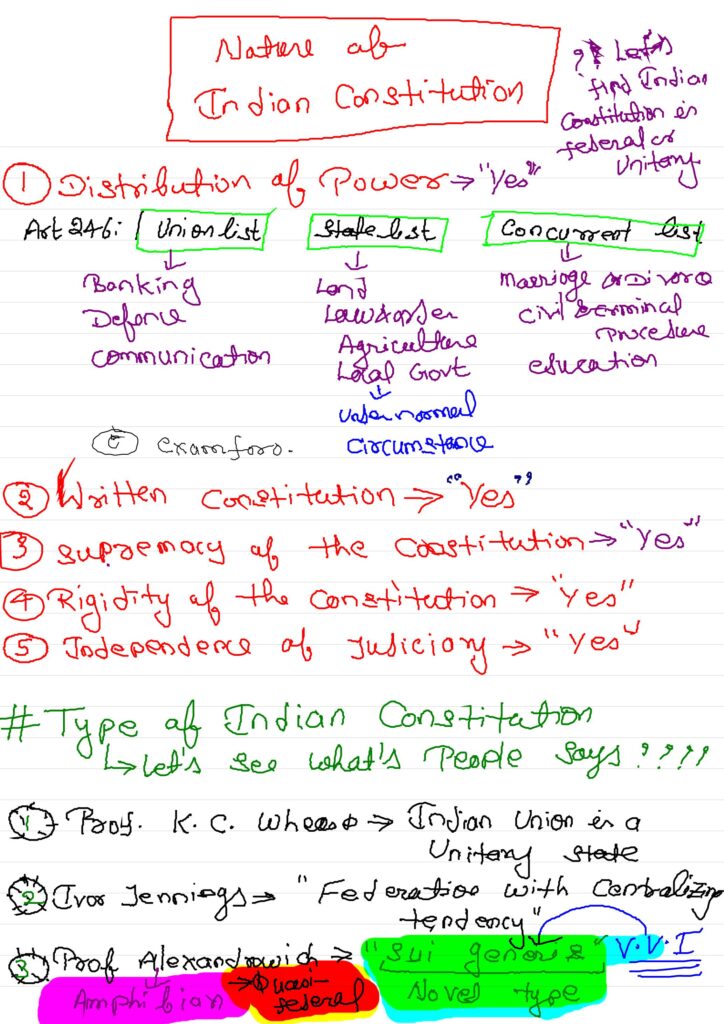 Nature of
Indian Constitution
? Let's
find Indian
Constitution is
federal or
Unitary
① Distribution of Power → "Yes"
Art 246: Union list State list Concurrent list
Banking
Defence
communication
Land
Law & order
Agriculture
Local Govt
under normal
circumstance
Marriage or Divorce
civil & criminal
procedure
education
© examforo.
② Written Constitution → "Yes"
③ supremacy of the Constitution → "Yes"
④ Rigidity of the constitution → "Yes"
⑤ Independence of Judiciary → "Yes"
# Type of Indian Constitution
↳ Let's see what's People says ????
① Prof. K. C. Wheare → Indian Union is a
Unitary state
② Ivor Jennings → "Federation with Centralizing
tendency"
③ Prof Alexandrowich → "sui generis" V.V.I
Amphibian → Quasi-
federal
Novel type